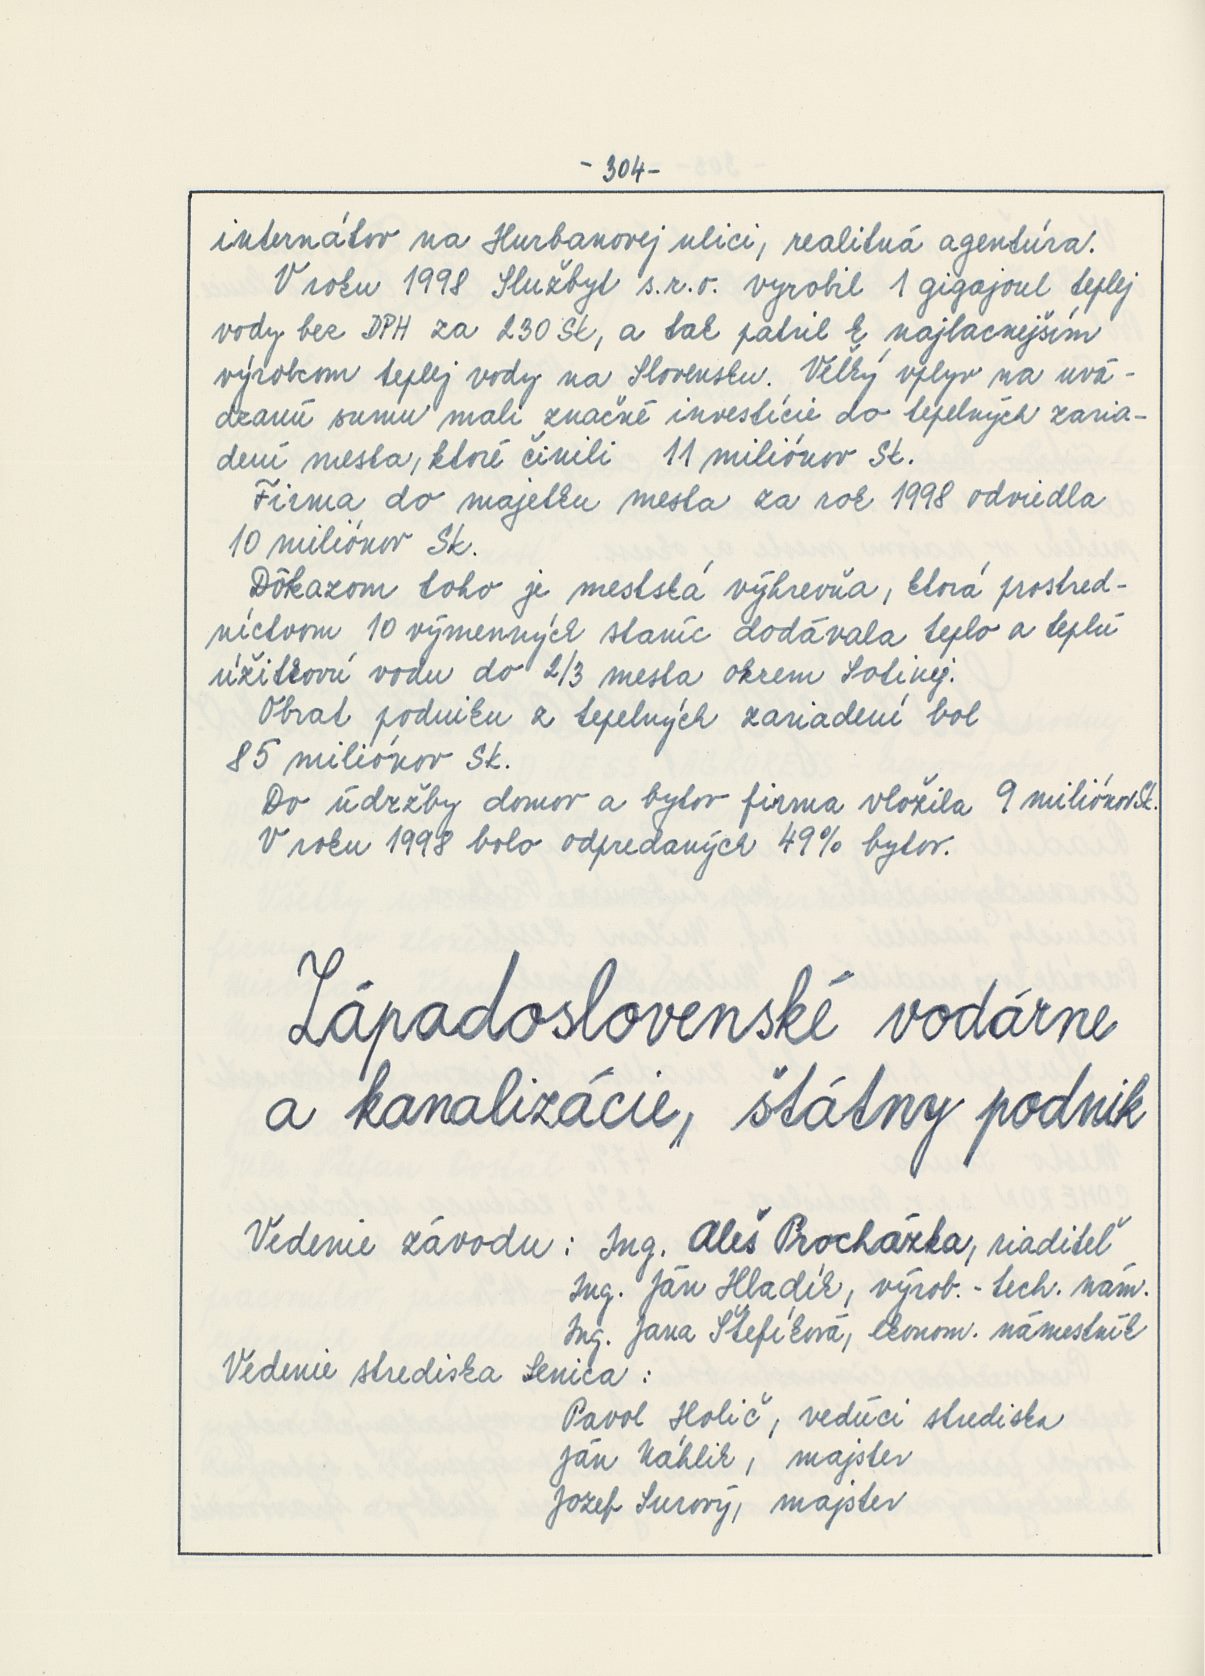 - 304-
internátov na Hurbanovej ulici, realitná agentúra.
V roku 1998 Službyt s.r.o. vyrobil 1 gigajoul teplej
vody bez DPH za 230 Sk, a tak patril k najlacnejším
výrobcom teplej vody na Slovensku. Veľký vplyv na uvá-
dzanú sumu mali značné investície do tepelných zaria-
dení mesta, ktoré činili 11 miliónov Sk.
Firma do majetku mesta za rok 1998 odviedla
10 miliónov Sk.
Dôkazom toho je mestská výhrevňa, ktorá prostred-
níctvom 10 výmenných staníc dodávala teplo a teplú
úžitkovú vodu do 2/3 mesta okrem Sotinej.
Obrat podniku z tepelných zariadení bol
85 miliónov Sk.
Do údržby domov a bytov firma vložila 9 miliónov Sk.
V roku 1998 bolo odpredaných 49% bytov.
Západoslovenské vodárne
a kanalizácie, štátny podnik
Vedenie závodu : Ing. Aleš Procházka, riaditeľ
Ing. Ján Hladík, výrob. - tech. nám.
Ing. Jana Štefíková, ekonom. námestník
Vedenie strediska Senica :
Pavol Holič, vedúci strediska
Ján Náhlik, majster
Jozef Surový, majster